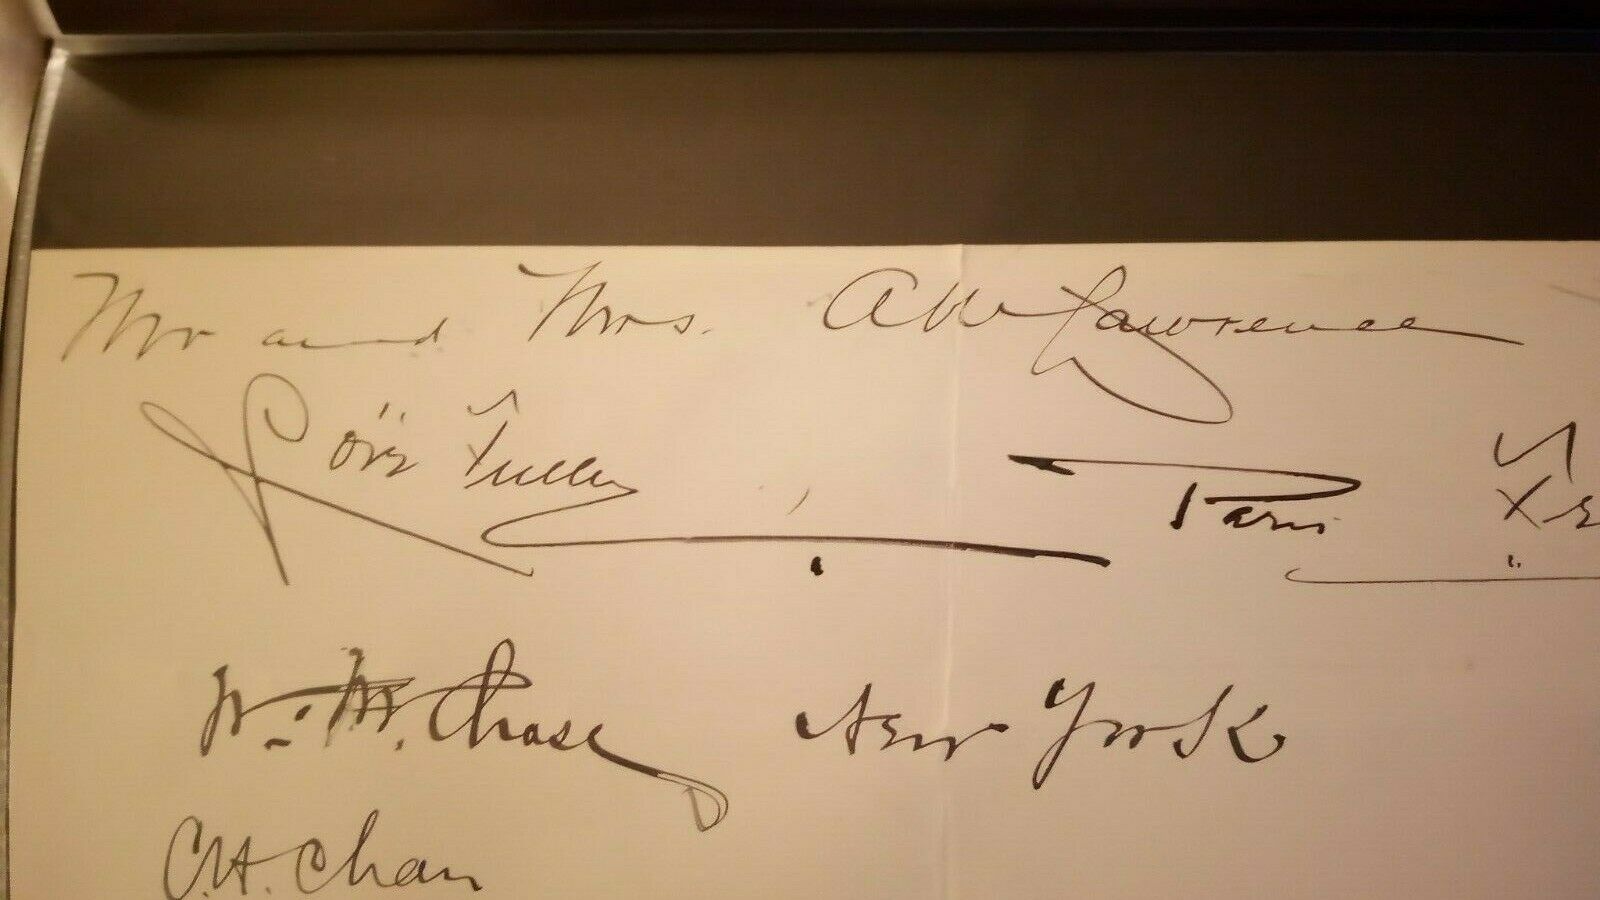 Mr and Mrs. A W Lawrence
Loïe Fuller Paris
Wm. M. Chase New York
C.H. Chan